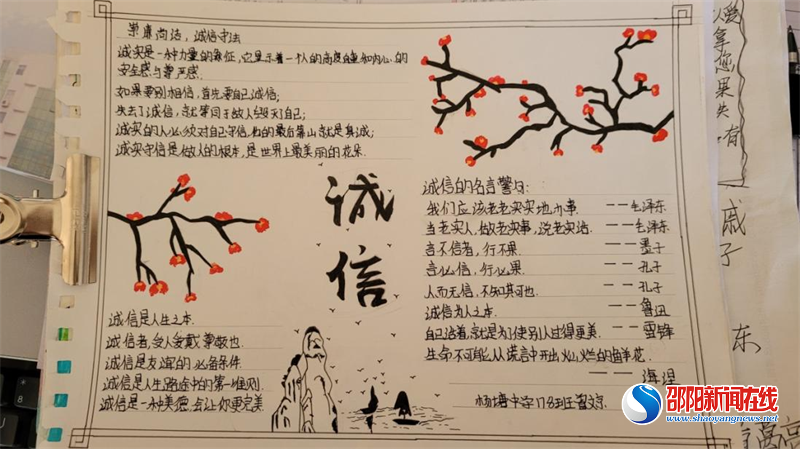 崇廉尚洁，诚信守法
诚实是一种力量的象征，它显示着一个人的高度自重和内心的
安全感与尊严感.
如果要别人相信，首先要自己诚信；
失去了诚信，就等同于敌人毁灭了自己；
诚实的人必须对自己守信，他的最后靠山就是真诚；
诚实守信是做人的根本，是世界上最美丽的花朵.
诚信
诚信是人生之本.
诚信者，受人爱戴，尊敬也.
诚信是友谊的必备条件.
诚信是人生路途中的第一准则.
诚信是一种美德，会让你更完美.
诚信的名言警句：
我们应该老老实实地办事. ——毛泽东
当老实人，做老实事，说老实话. ——毛泽东
言不信者，行不果. ——墨子
言必信，行必果. ——孔子
人而无信，不知其可也. ——孔子
诚信为人之本. ——鲁迅
自己活着，就是为了使别人过得更美. ——雷锋
生命不可能从谎言中开出灿烂的鲜花.
——海涅
邵阳新闻在线
www.shaoyangnews.net